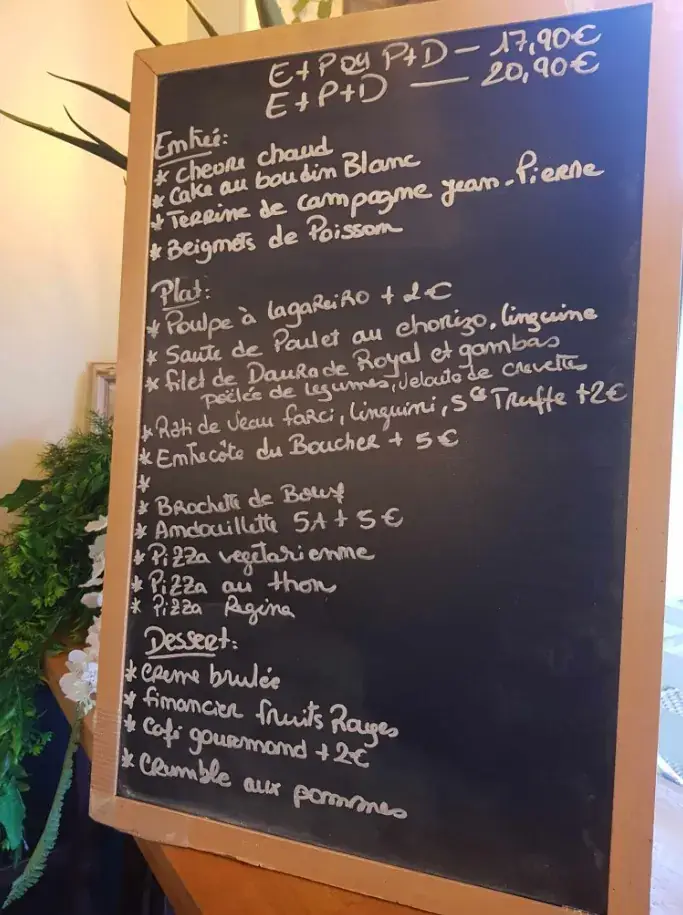 E+P ou P+D — 17,90€
E+P+D — 20,90€
Entrée:
* Chevre chaud
* Cake au boudin Blanc
* Terrine de campagne Jean-Pierre
* Beignets de Poisson
Plat:
* Poulpe à lagareiro + 2€
* Saute de Poulet au chorizo, linguine
* Filet de Daurade Royal et gambas
poëlée de legumes, veloute de crevettes
* Roti de Veau farci, linguini, Sce Truffe +2€
* Entrecôte du Boucher + 5€
*
* Brochette de Boeuf
* Andouillette 5A + 5€
* Pizza vegetarienne
* Pizza au thon
* Pizza Regina
Dessert:
* Creme brulée
* financier fruits Rouges
* Café gourmand +2€
* Crumble aux pommes